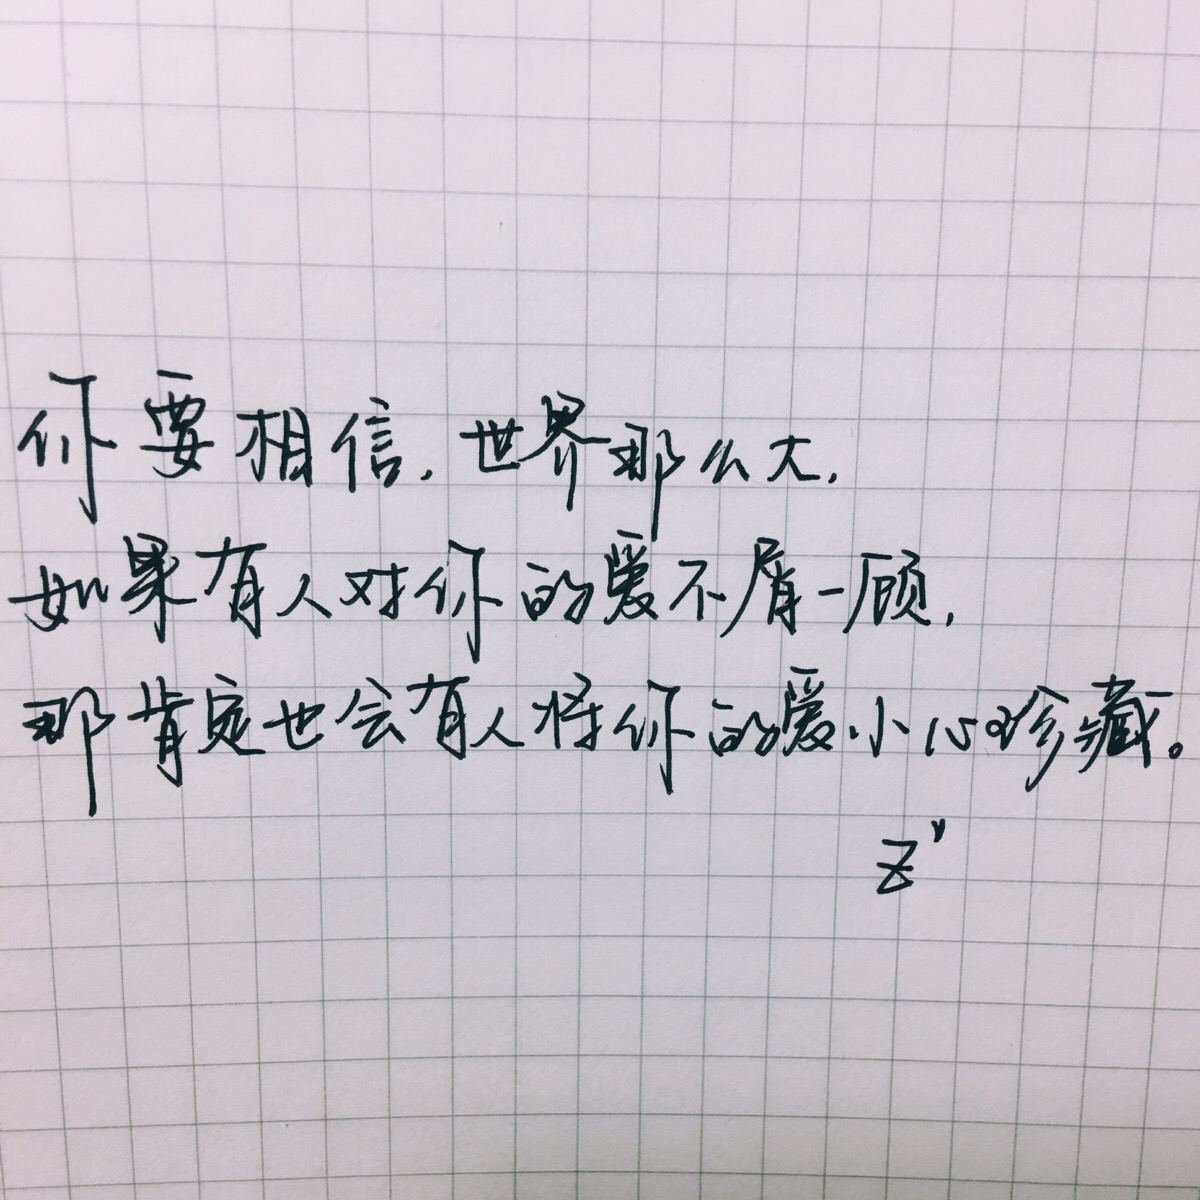 你要相信，世界那么大，
如果有人对你的爱不屑一顾，
那肯定也会有人将你的爱小心珍藏。
Z"